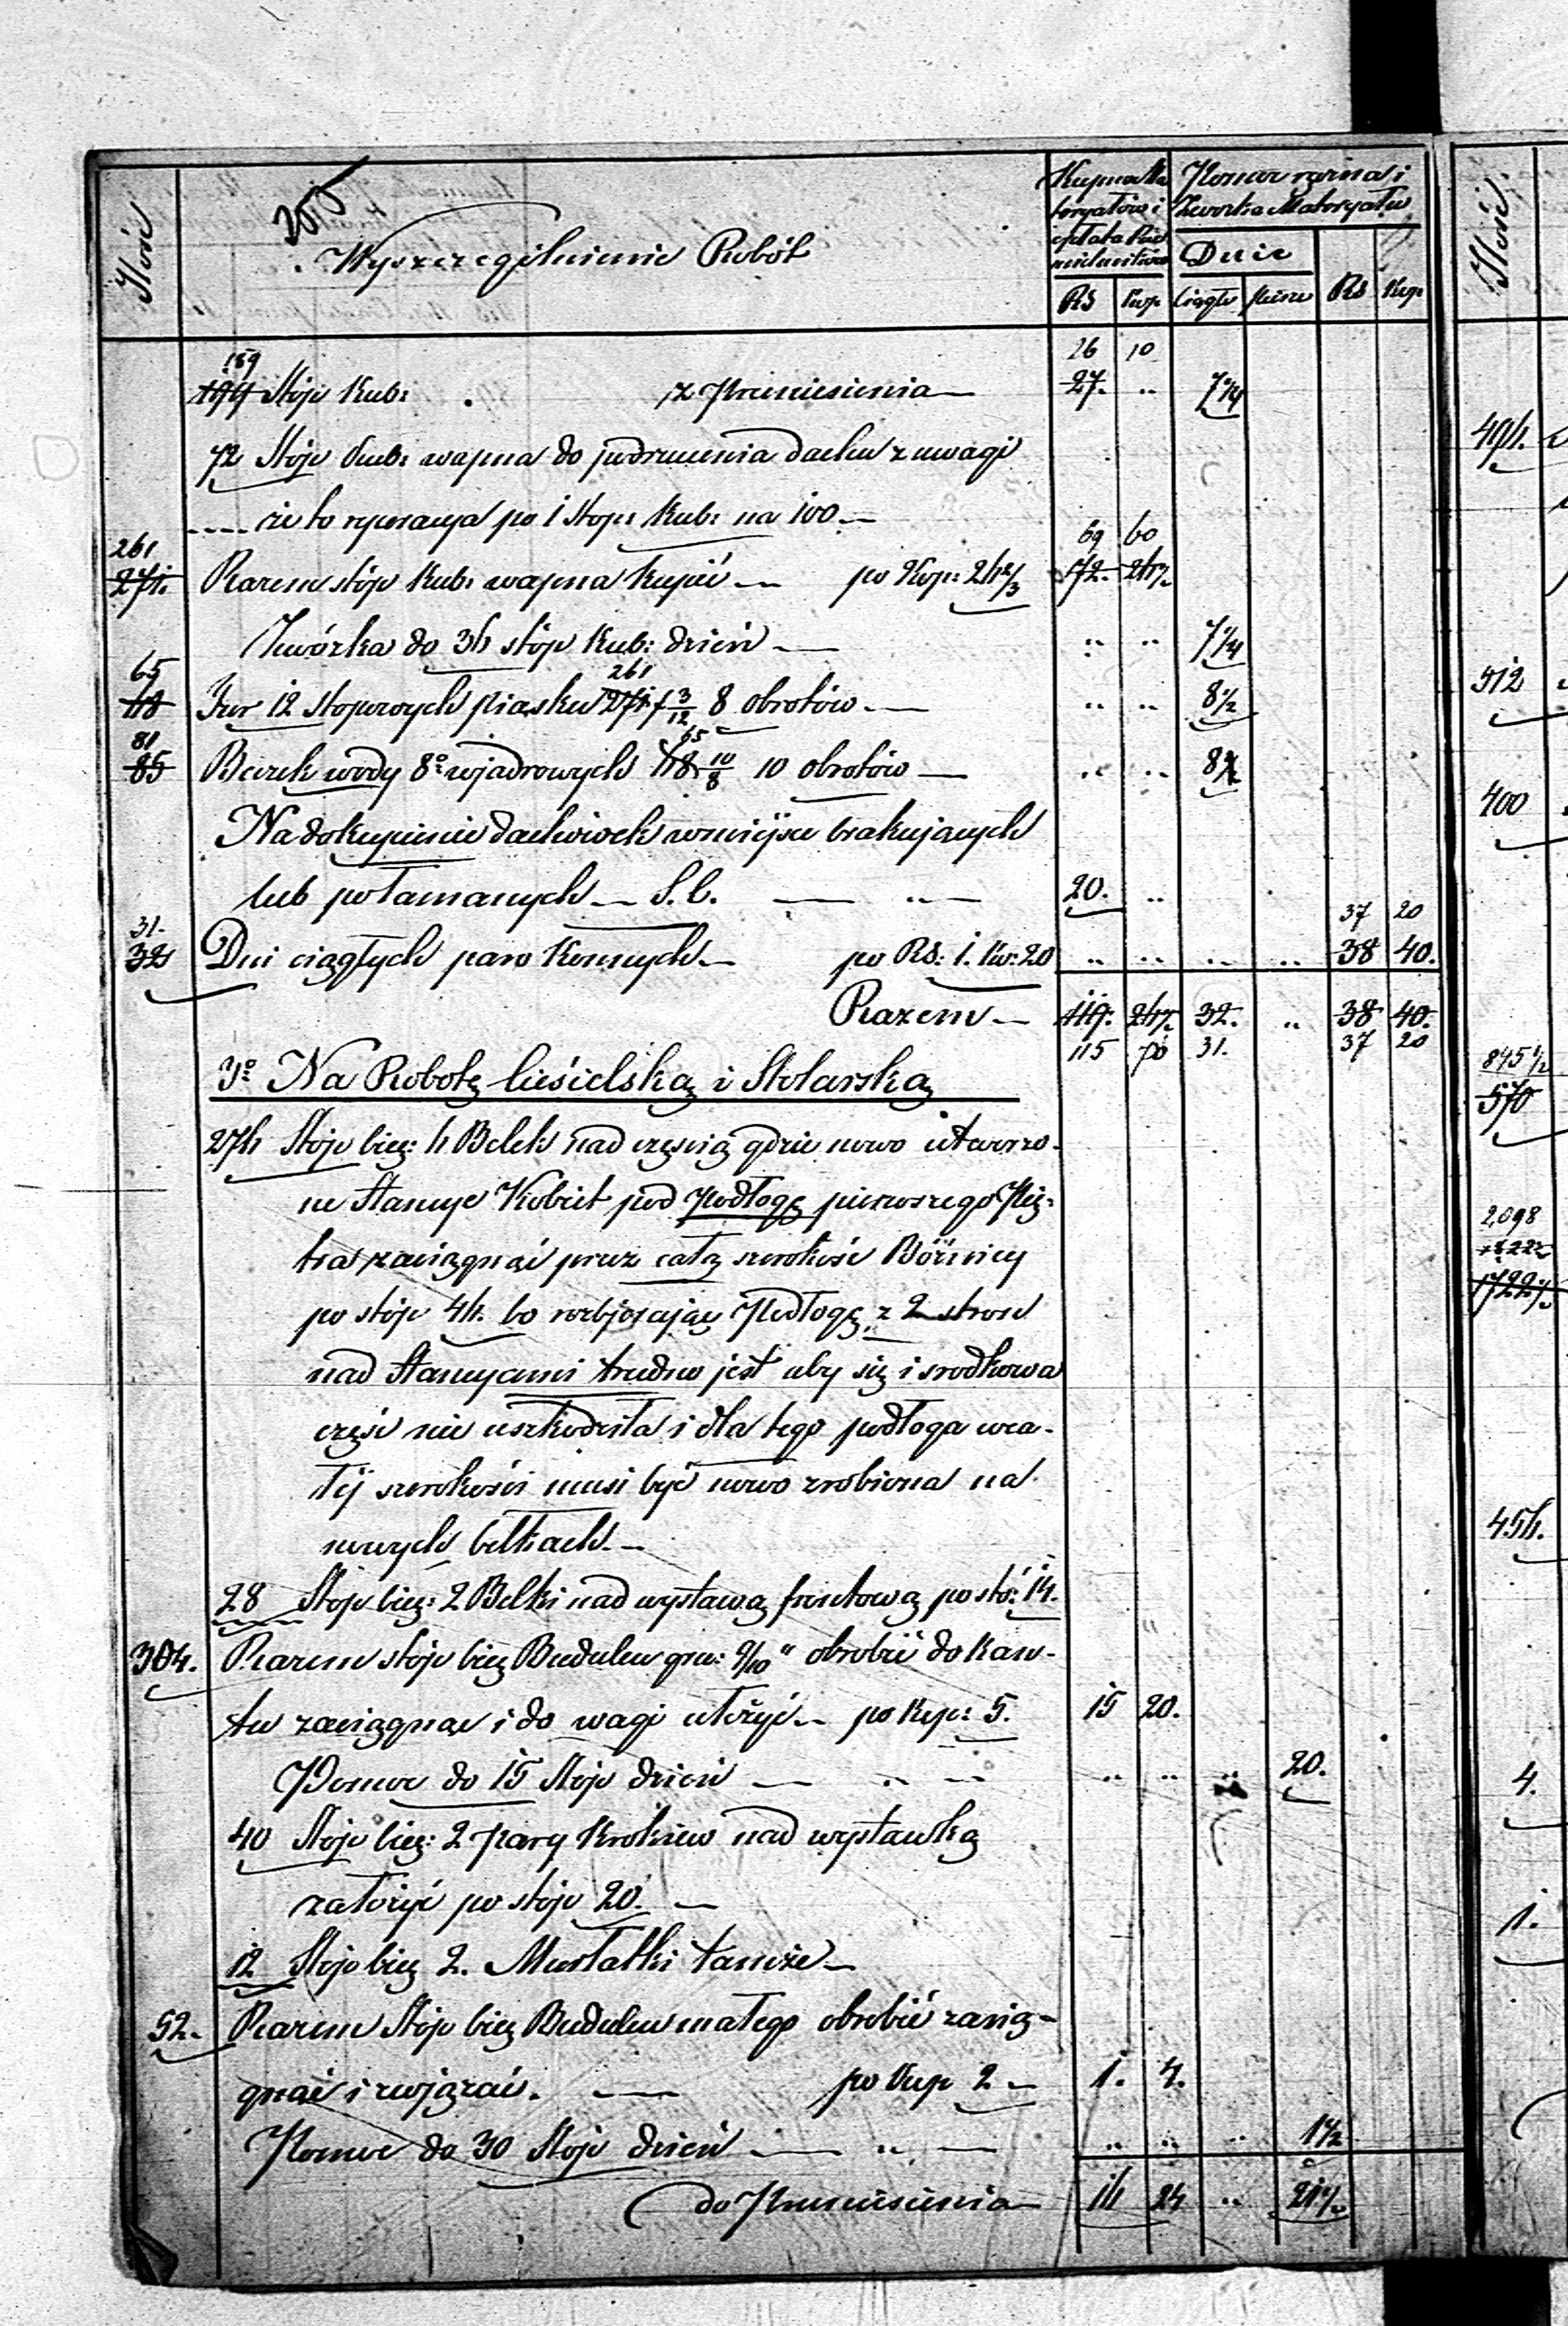 305
Ilość
Wyszczególnienie Robót
Kupno Ma
teryałów i
opłata Rze
mieślników
Pomoc ręczna i
Zwózka Materyałów
Dnie
RS Kop. Ciągłe Piesze RS Kop.
26 10
189
194 Stóp Kub: z Przeniesienia 27. .. 7 1/4
72 Stóp Kub: wapna do podrzucenia dachu z uwagi
że to reparacya po 1 Stop: Kub: na 100.
261 69 60
271. Razem stóp Kub: wapna kupić po Kop: 26 2/3 72. 27.
Zwózka do 36 stóp Kub: dzień .. .. 7 1/4
65 261
68 Fur 12 Stopowych piasku 271 f 3/12 8 obrotów .. .. 8 1/2
81 65
85 Beczek wody 8o wjadrowych 68 10/8 10 obrotów .. .. 8 1/2
Na dokupienie dachówek w miejsce brakujących
lub połamanych S.C. 20. ..
31. 37 20
32 Dni ciągłych paro Konnych po RS: 1. Ko: 20 .. .. .. .. 38 40.
Razem 119. 27. 32. .. 38 40.
115 70 31. 37 20
3o Na Robotę Ciesielską i Stolarską
274 Stóp bież: 6 Belek nad częścią gdzie nowo utworzo-
ne Stancye Kobiet pod Podłogę pierwszego Pię-
tra zaciągnąć przez całą szerokość Bóżnicy
po stóp 46. bo rozbjerając Podłogę z 2 stron
nad Stancyami trudno jest aby się i srodkowa
część nie uszkodziła i dla tego podłoga w ca-
łéj szerokości musi być nowo zrobiona na
nowych belkach.
28 Stóp bież: 2 Belki nad wystawą frontową po stó: 14.
304. Razem stóp bież Budulcu gru: 9/10" obrobić do Kan-
tu zaciągnąć i do wagi ułożyć po Kop: 5. 15 20.
Pomoc do 15 Stóp dzień .. .. .. 20.
40 Stóp bież: 2 pary Krokiew nad wystawką
założyć po stóp 20.
12 Stóp bież 2. Murłatki tamże
52. Razem Stóp bież Budulcu małego obrobić zacią-
gnąć i zwjązać. po Kop 2 1. 4.
Pomoc do 30 Stóp dzień .. .. .. 1 1/2
do Przeniesienia 16 24 .. 21 1/2
Ilość
512
400
845 1/2
570
2,098
4.
1.